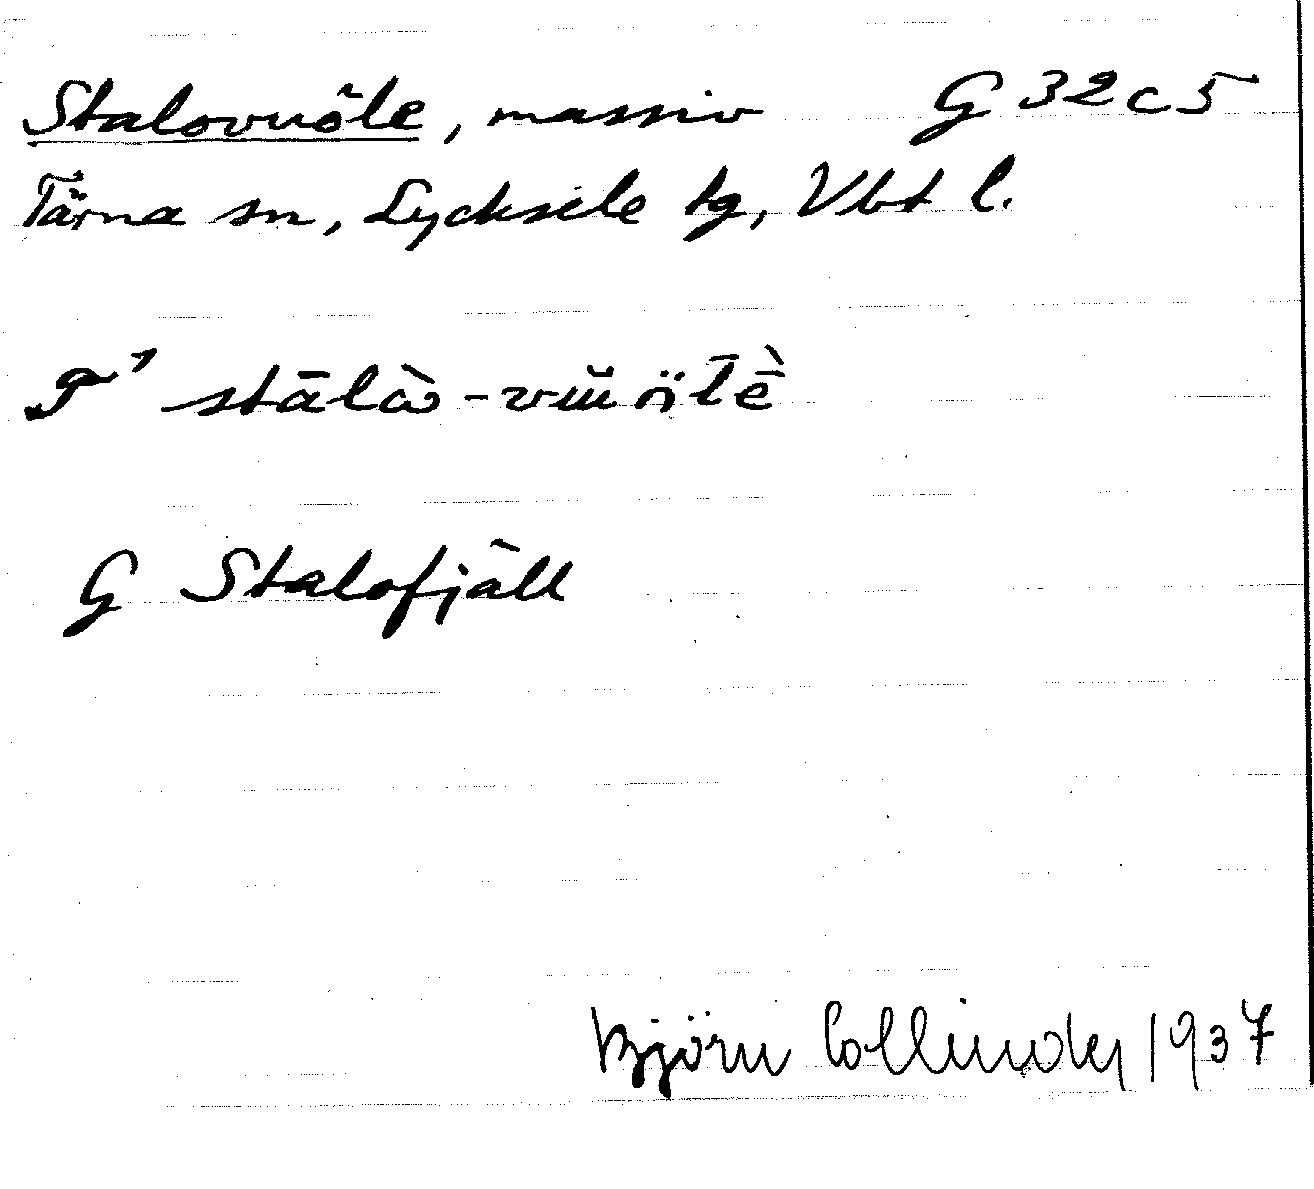 Stalovuöle, massiv G 32 c 5
Tärna sn, Lycksele tg, Vbt l.
stālà̀ -
G Stalofjäll
Björn Collinder 1937